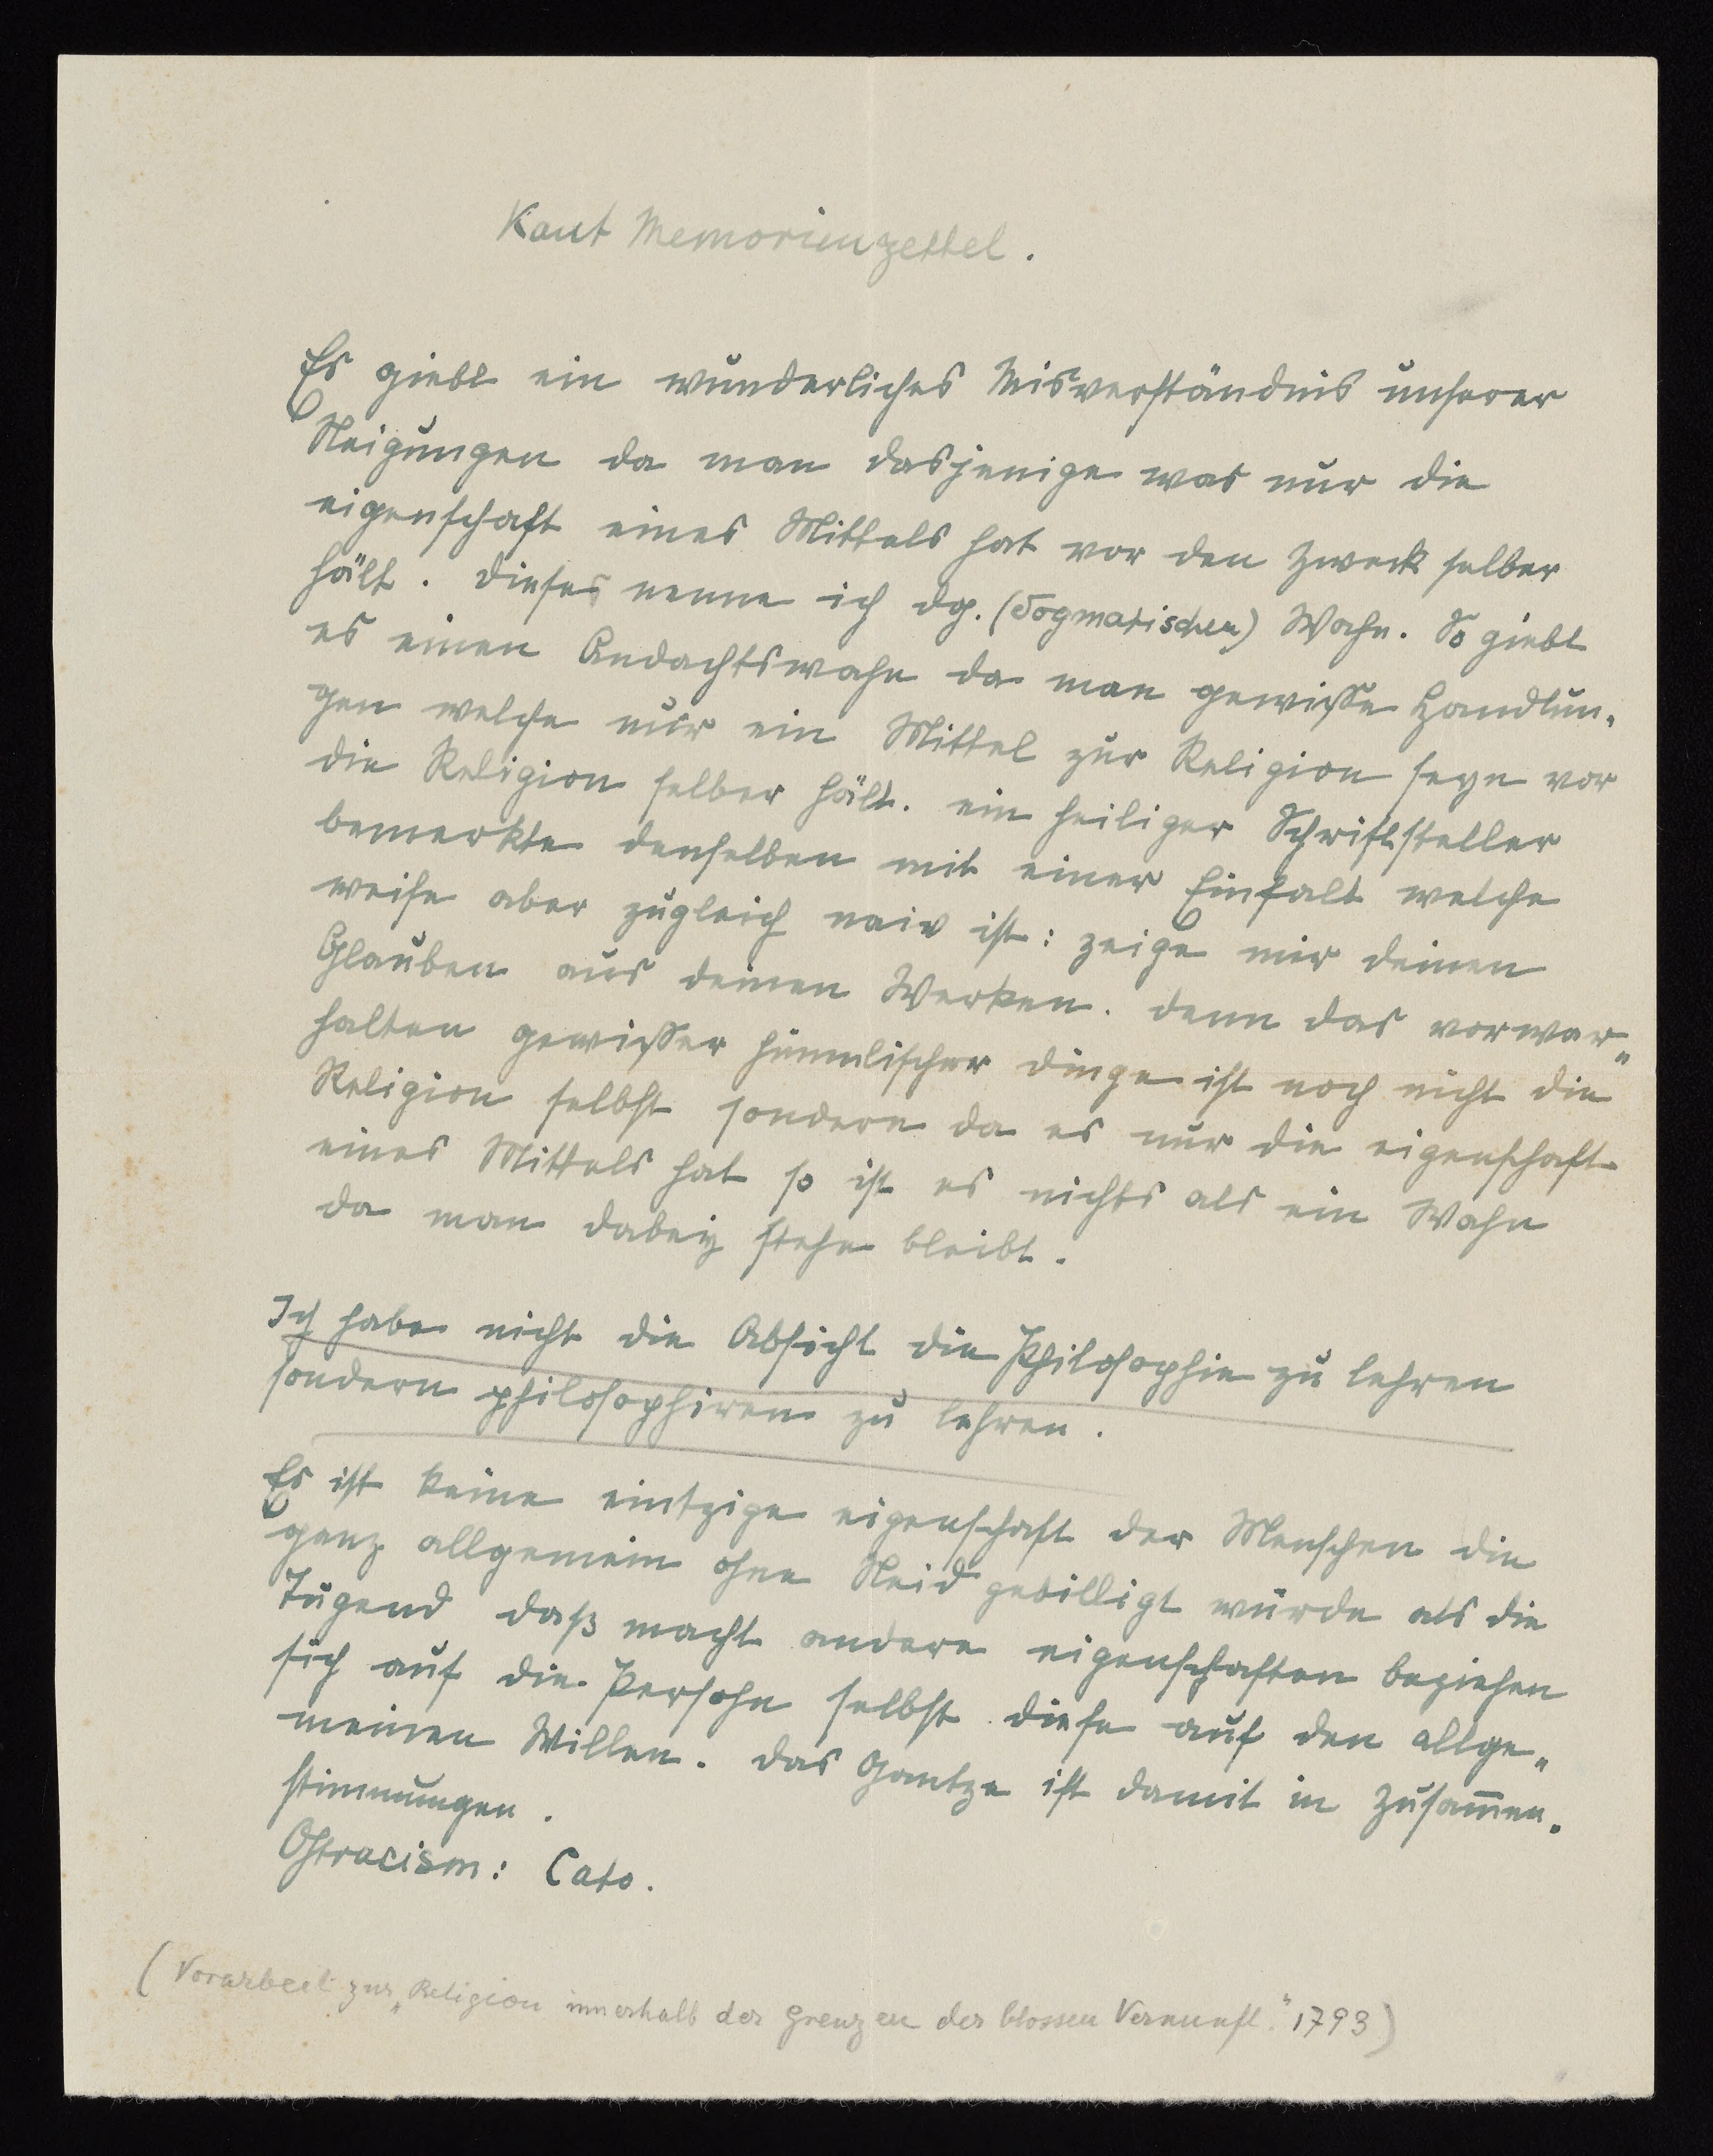 Kant Memorienzettel.
Es giebt ein wunderliches Misverständnis unserer
Neigungen da man dasjenige was nur die
eigenschaft eines Mittels hat vor den Zweck selber
hält. Dieses nenne ich dg. (dogmatischen) Wahn. So giebt
es einen Andachtswahn da man gewisse Handlun-
gen welche nur ein Mittel zur Religion seyn vor
die Religion selber hält. ein heiliger Schriftsteller
bemerkte denselben mit einer Einfalt welche
weise aber zugleich naiv ist: zeige mir deinen
Glauben aus deinen Werken. denn das vorwar„
halten gewisser himmlischer dinge ist noch nicht die
Religion selbst sondern da es nur die eigenschaft
eines Mittels hat so ist es nichts als ein Wahn
da man dabey stehn bleibt.
Ich habe nicht die Absicht die Philosophie zu lehren
sondern philosophiren zu lehren.
Es ist keine eintzige eigenschaft der Menschen die
ganz allgemein ohne Neid gebilligt würde als die
Tugend daß macht andere eigenschaften beziehen
sich auf die Persohn selbst diese auf den allge„
meinen Willen. das Gantze ist damit in Zusam̄en-
stimmungen.
Ostracism: Cato.
(Vorarbeit zur „Religion innerhalb der Grenzen der blossen Vernunft." 1793)